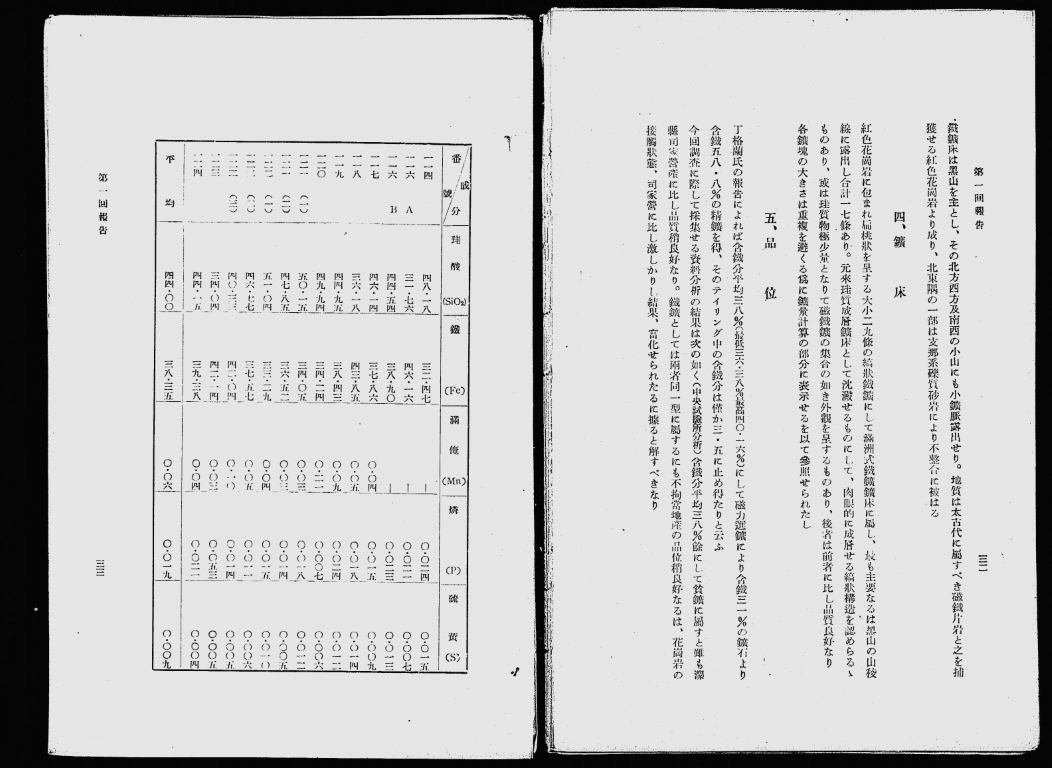 第一回報告
鐵鑛床は黑山を主とし、その北方西方及南西の小山にも小鑛脈露出せり。地質は太古代に屬すべき磁鐵片岩と之を捕
獲せる紅色花崗岩より成り、北東隅の一部は支那系礫質砂岩により不整合に被はる
四、鑛床
紅色花崗岩に包まれ扁桃狀を呈する大小二九條の縞狀鐵鑛にして滿洲式鐵鑛鑛床に屬し、最も主要なるは黑山の山稜
線に露出し合計一七條あり。元來珪質成層鑛床として沈澱せるものにして、肉眼的に成層せる縞狀構造を認めらるゝ
ものあり、或は珪質物極少量となりて磁鐵鑛の集合の如き外觀を呈するものあり、後者は前者に比し品質良好なり
各鑛塊の大きさは重複を避くる爲に鑛量計算の部分に表示せるを以て參照せられたし
五、品位
丁格蘭氏の報告によれば含鐵分平均三八%(最低三六・三八%最高四〇・一六%)にして磁力選鑛により含鐵三一%の鑛石より
含鐵五八・八%の精鑛を得、そのテイリング中の含鐵分は僅か三・五に止め得たりと云ふ
今回調査に際して採集せる資料分析の結果は次の如く(中央試驗所分析)含鐵分平均三八%餘にして貧鑛に屬すと雖も灤
縣司家營產に比し品質稍良好なり。鐵鑛としては兩者同一型に屬するにも不拘當地產の品位稍良好なるは、花崗岩の
接觸狀態、司家營に比し激しかりし結果、富化せられたるに據ると解すべきなり
三二
番號 成分 珪酸(SiO₂) 鐵(Fe) 滿俺(Mn) 燐(P) 硫黃(S)
一一四 四八・一八 三二・四七 — 〇・〇二四 〇・〇一五
一一六 A 三一・七六 四六・一六 — 〇・〇二一 〇・〇〇七
一一六 B 四四・五四 三八・九〇 — 〇・〇二三 〇・〇一三
一一七 三六・一四 三七・八六 〇・〇四 〇・〇一五 〇・〇〇九
一一八 三六・一八 四三・八五 〇・〇五 〇・〇一八 〇・〇一四
一一九 四九・九四 三八・四三 〇・〇九 〇・〇二四 〇・〇一二
一二〇 三四・二四 〇・一一 〇・〇〇七 〇・〇〇六
一二一 (一) 五〇・一五 三四・〇五 〇・〇三 〇・〇一八 〇・〇一二
一二一 (二) 四七・八五 三六・五二 〇・〇三 〇・〇一四 〇・〇〇五
一二二 (一) 五一・〇四 三三・二九 〇・〇四 〇・〇一五 〇・〇一〇
四六・七七 三七・五七 〇・〇五 〇・〇一一 〇・〇〇六
四〇・三三 四一・〇四 〇・一〇 〇・〇一四 〇・〇〇五
一二三 三四・〇四 四二・一四 〇・〇三 〇・〇五三 〇・〇〇五
一二四 四四・一五 三九・三八 〇・〇四 〇・〇二一 〇・〇〇四
平均 四四・〇〇 三八・三五 〇・〇六 〇・〇一九 〇・〇〇九
第一回報告
三三